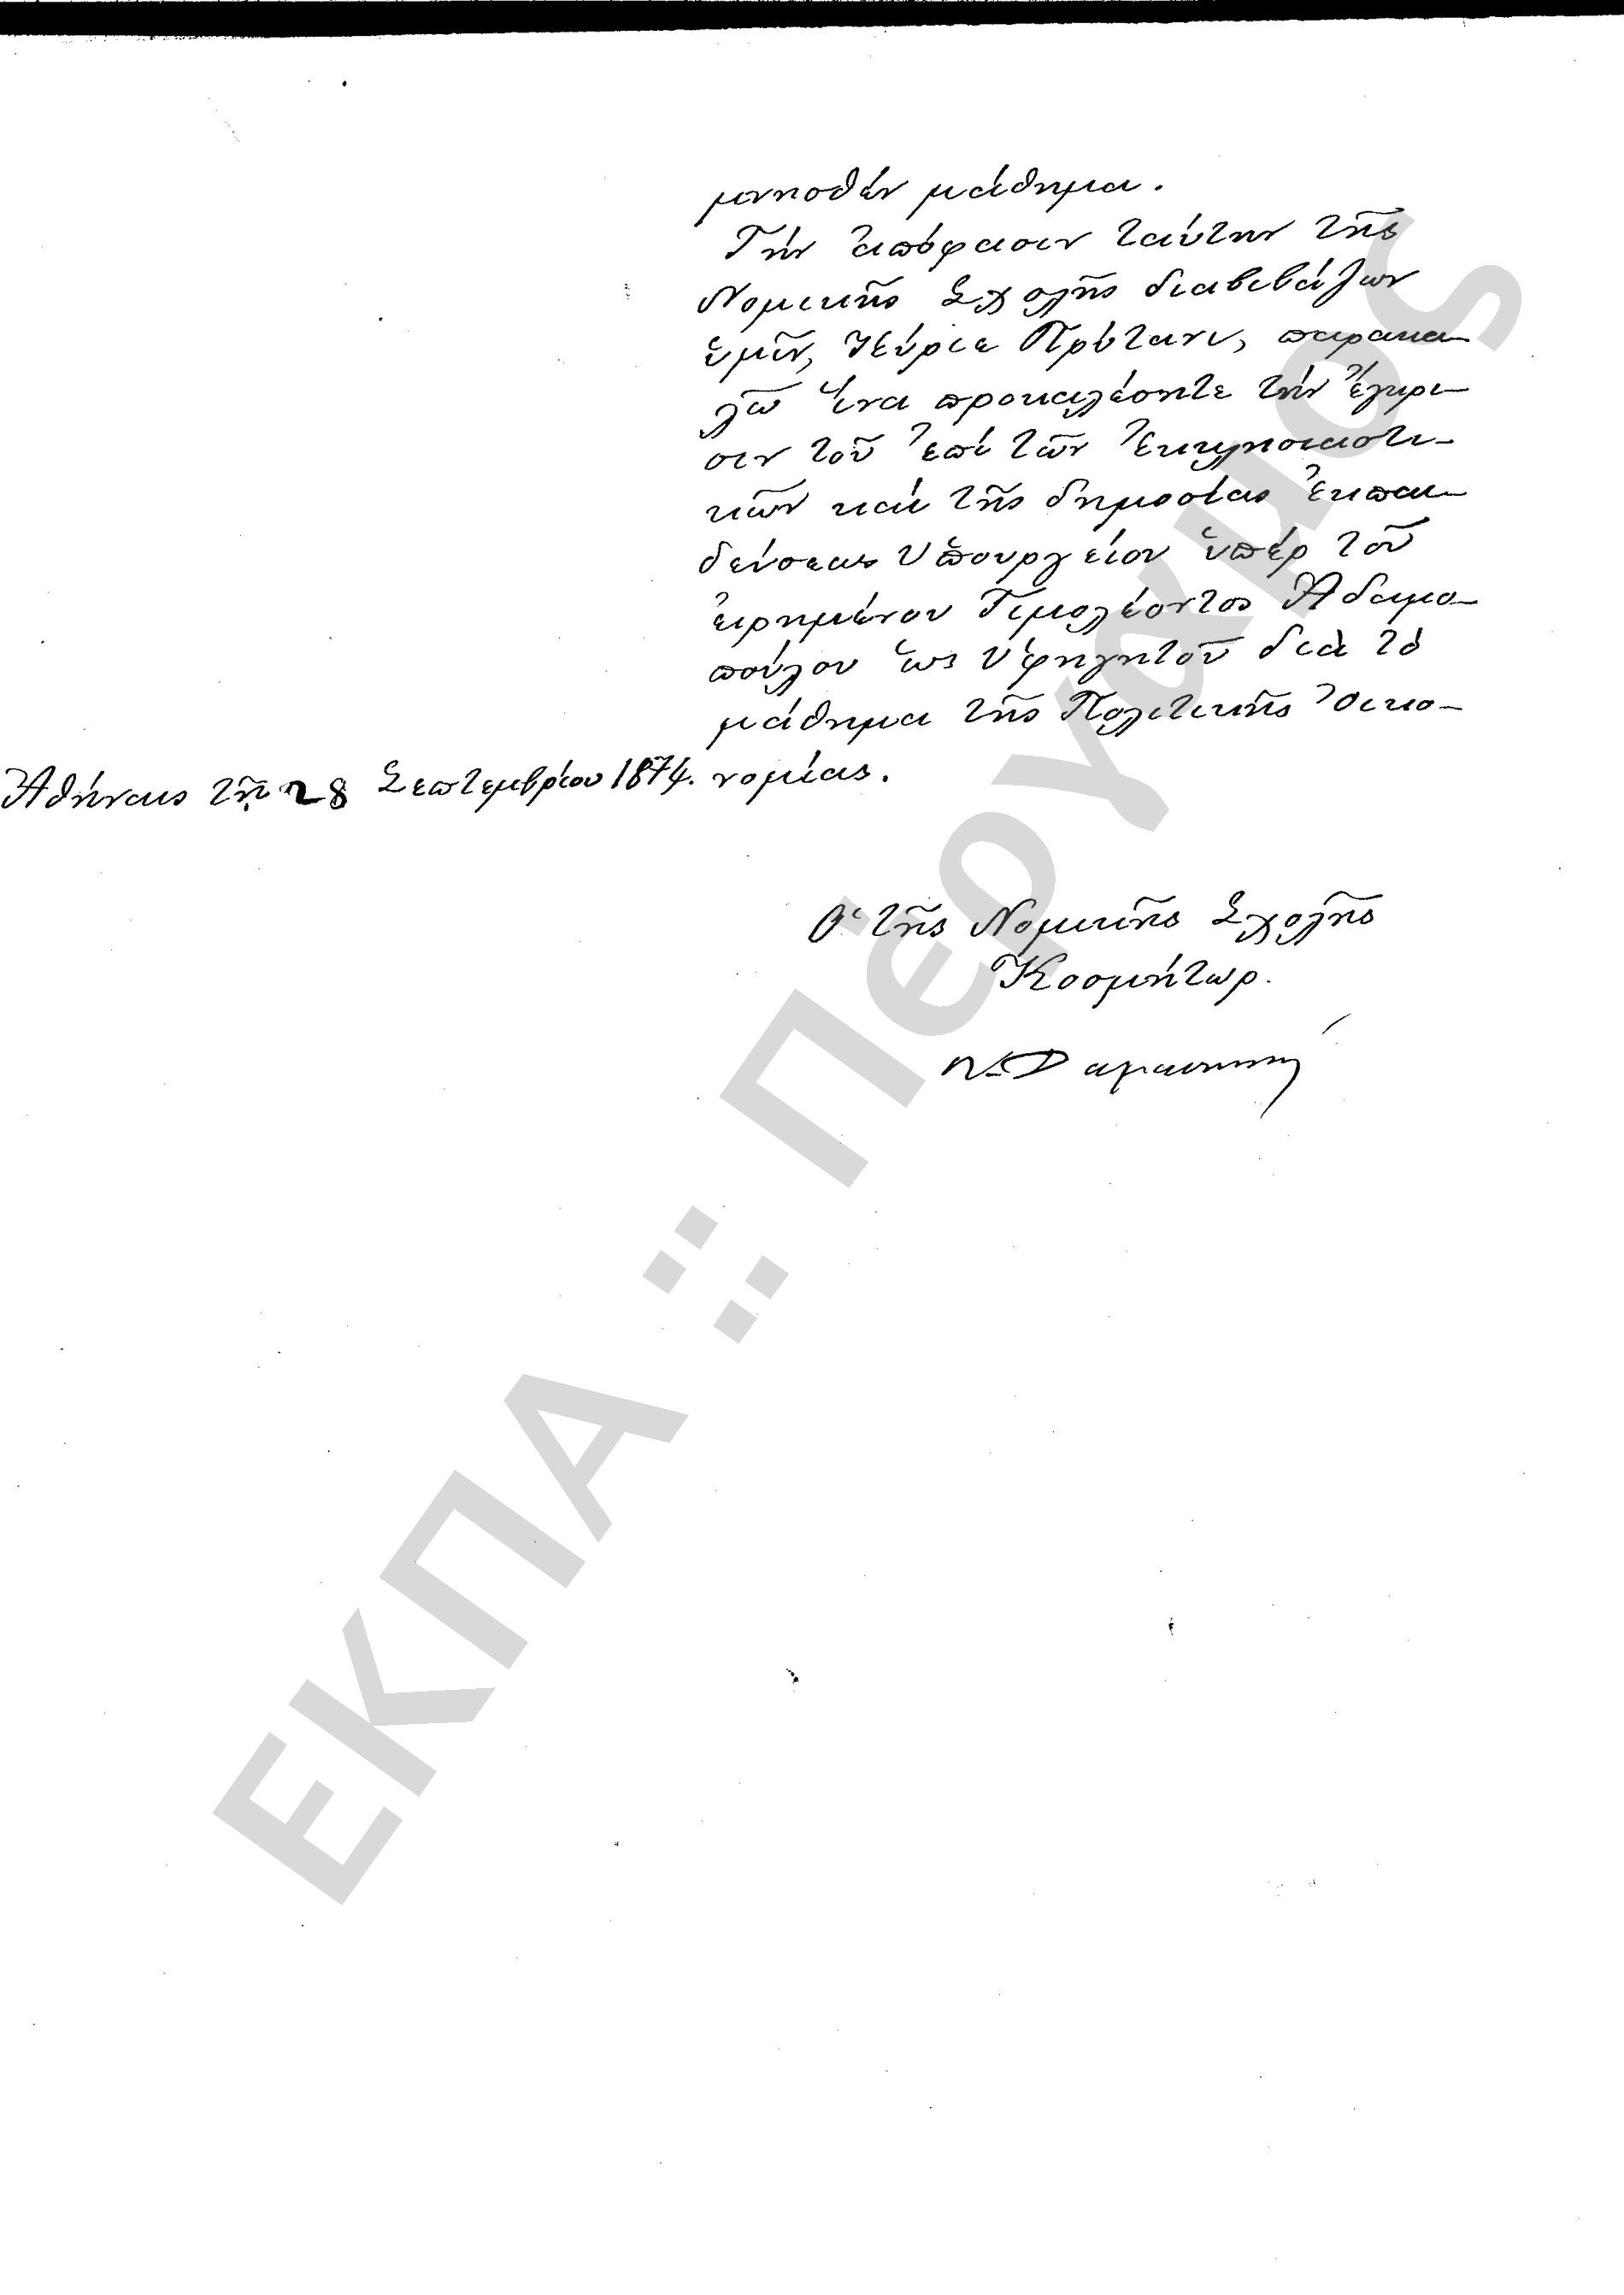 μνησθέν μάθημα.
Τήν ἀπόφασιν ταύτην τῆς
Νομικῆς Σχολῆς διαβιβάζων
ὑμῖν, Κύριε Πρύτανι, παρακα-
λῶ ἵνα προκαλέσητε τήν ἔγκρι-
σιν τοῦ ἐπί τῶν Ἐκκλησιαστι-
κῶν καί τῆς δημοσίας ἐκπαι-
δεύσεως Ὑπουργείου ὑπέρ τοῦ
εἰρημένου Τιμολέοντος Ἀδαμο-
πούλου ὡς Ὑφηγητοῦ διά τό
μάθημα τῆς Πολιτικῆς Οἰκο-
νομίας.
Ἀθήναις τῇ 28 Σεπτεμβρίου 1874.
Ὁ τῆς Νομικῆς Σχολῆς
Κοσμήτωρ.
Ν. Δαμασκηνός
ΕΚΠΑ :: Πέργαμος